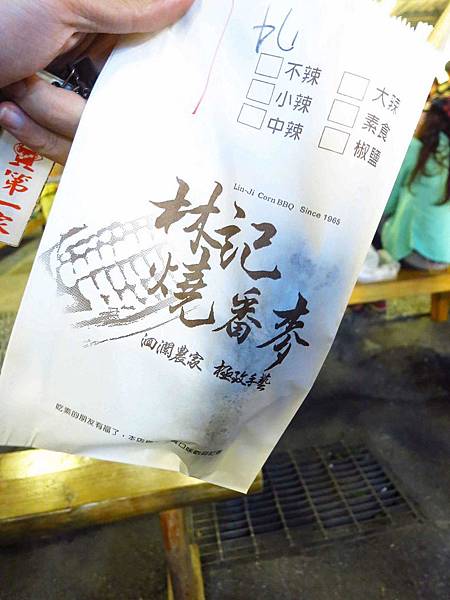 不辣
小辣
中辣
大辣
素食
椒鹽
Lin-Ji Corn BBQ Since 1965
林記
燒番麥
洄瀾農家 極致手藝
吃素的朋友有福了,本店
第一家